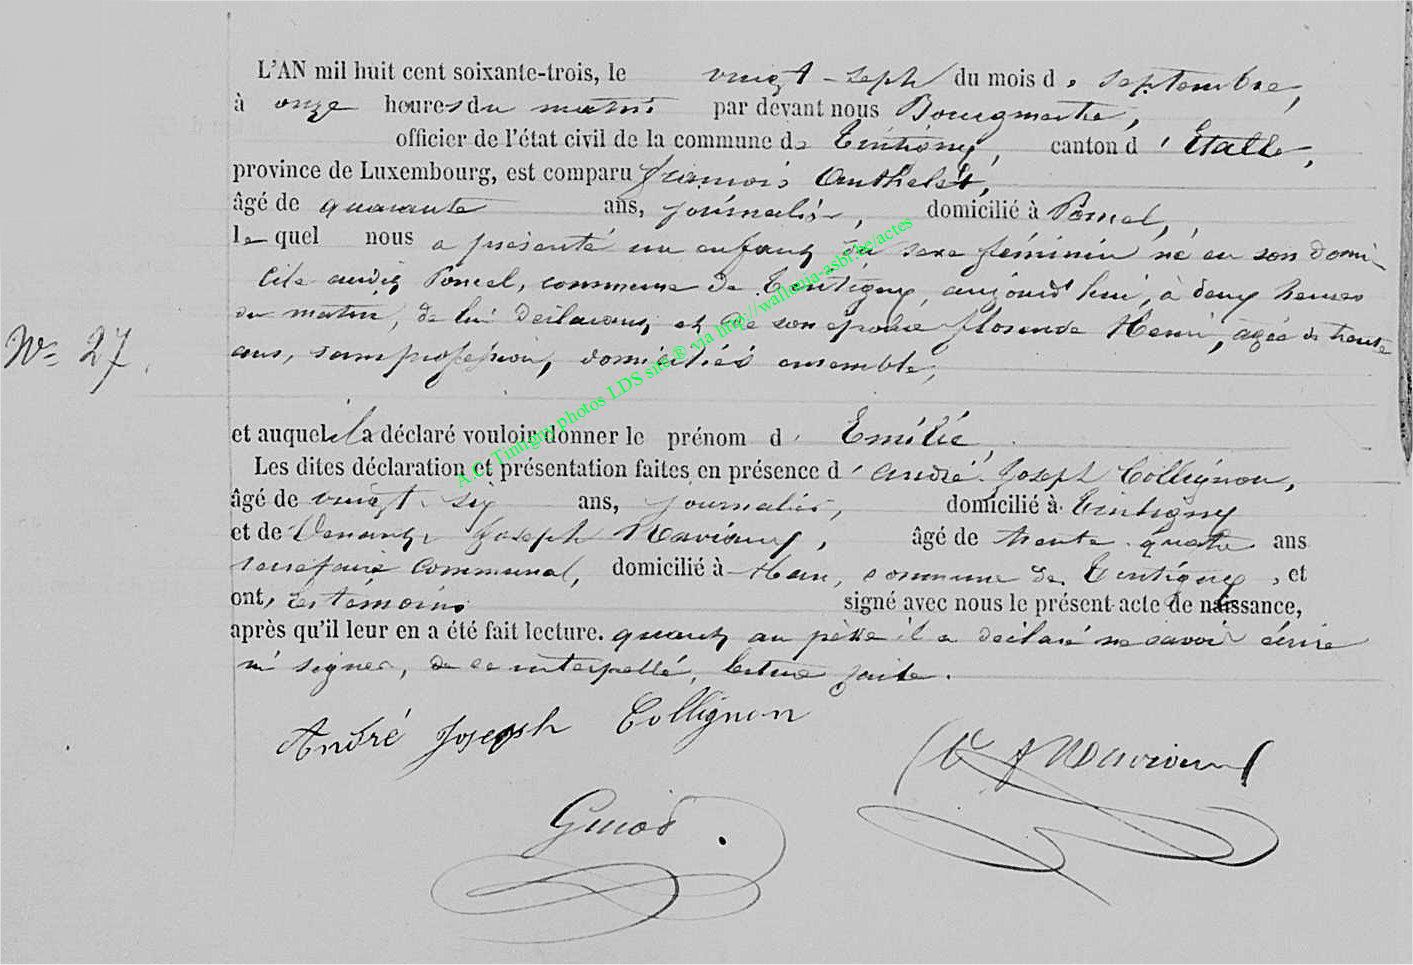 L'AN mil huit cent soixante-trois, le vingt-sept du mois de septembre,
à onze heures du matin par devant nous Bourgmestre,
officier de l'état civil de la commune de Tintigny, canton d'Etalle,
province de Luxembourg, est comparu françois Anthelet,
âgé de quarante ans, journalier, domicilié à Poncel,
lequel nous a présenté un enfant du sexe féminin né en son domi-
cile audit Poncel, commune de Tintigny, aujourd'hui, à deux heures
du matin, de lui déclarant, et de son épouse florende Henri, agée de trente
ans, sans profession, domiciliés ensemble,
N° 27.
et auquel il a déclaré vouloir donner le prénom d'Emélie,
Les dites déclaration et présentation faites en présence d'andré Joseph Collignon,
âgé de vingt-six ans, journalier, domicilié à Tintigny
et de Joseph âgé de trente-quatre ans
secrétaire Communal, domicilié à han, commune de Tintigny, et
ont, les témoins signé avec nous le présent acte de naissance,
après qu'il leur en a été fait lecture. quant au père il a déclaré ne savoir écrire
ni signer, de ce interpellé, lecture faite.
André Joseph Collignon
A.C. Tintigny photos LDS site ® via http://wallonia-asbl.be/actes